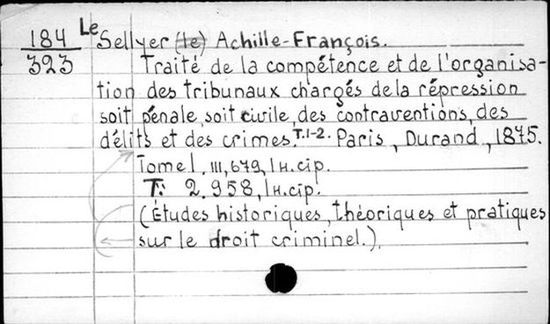 184 Le Sellyer (le) Achille-François.
323 Traité de la compétence et de l'organisa-
tion des tribunaux chargés de la répression
soit pénale, soit civile, des contraventions, des
délits et des crimes. T.1-2. Paris, Durand, 1875.
Tome 1, III, 679, 1 н.ср.
T. 2. 958, 1 н.ср.
(Études historiques, théoriques et pratiques
sur le droit criminel.).